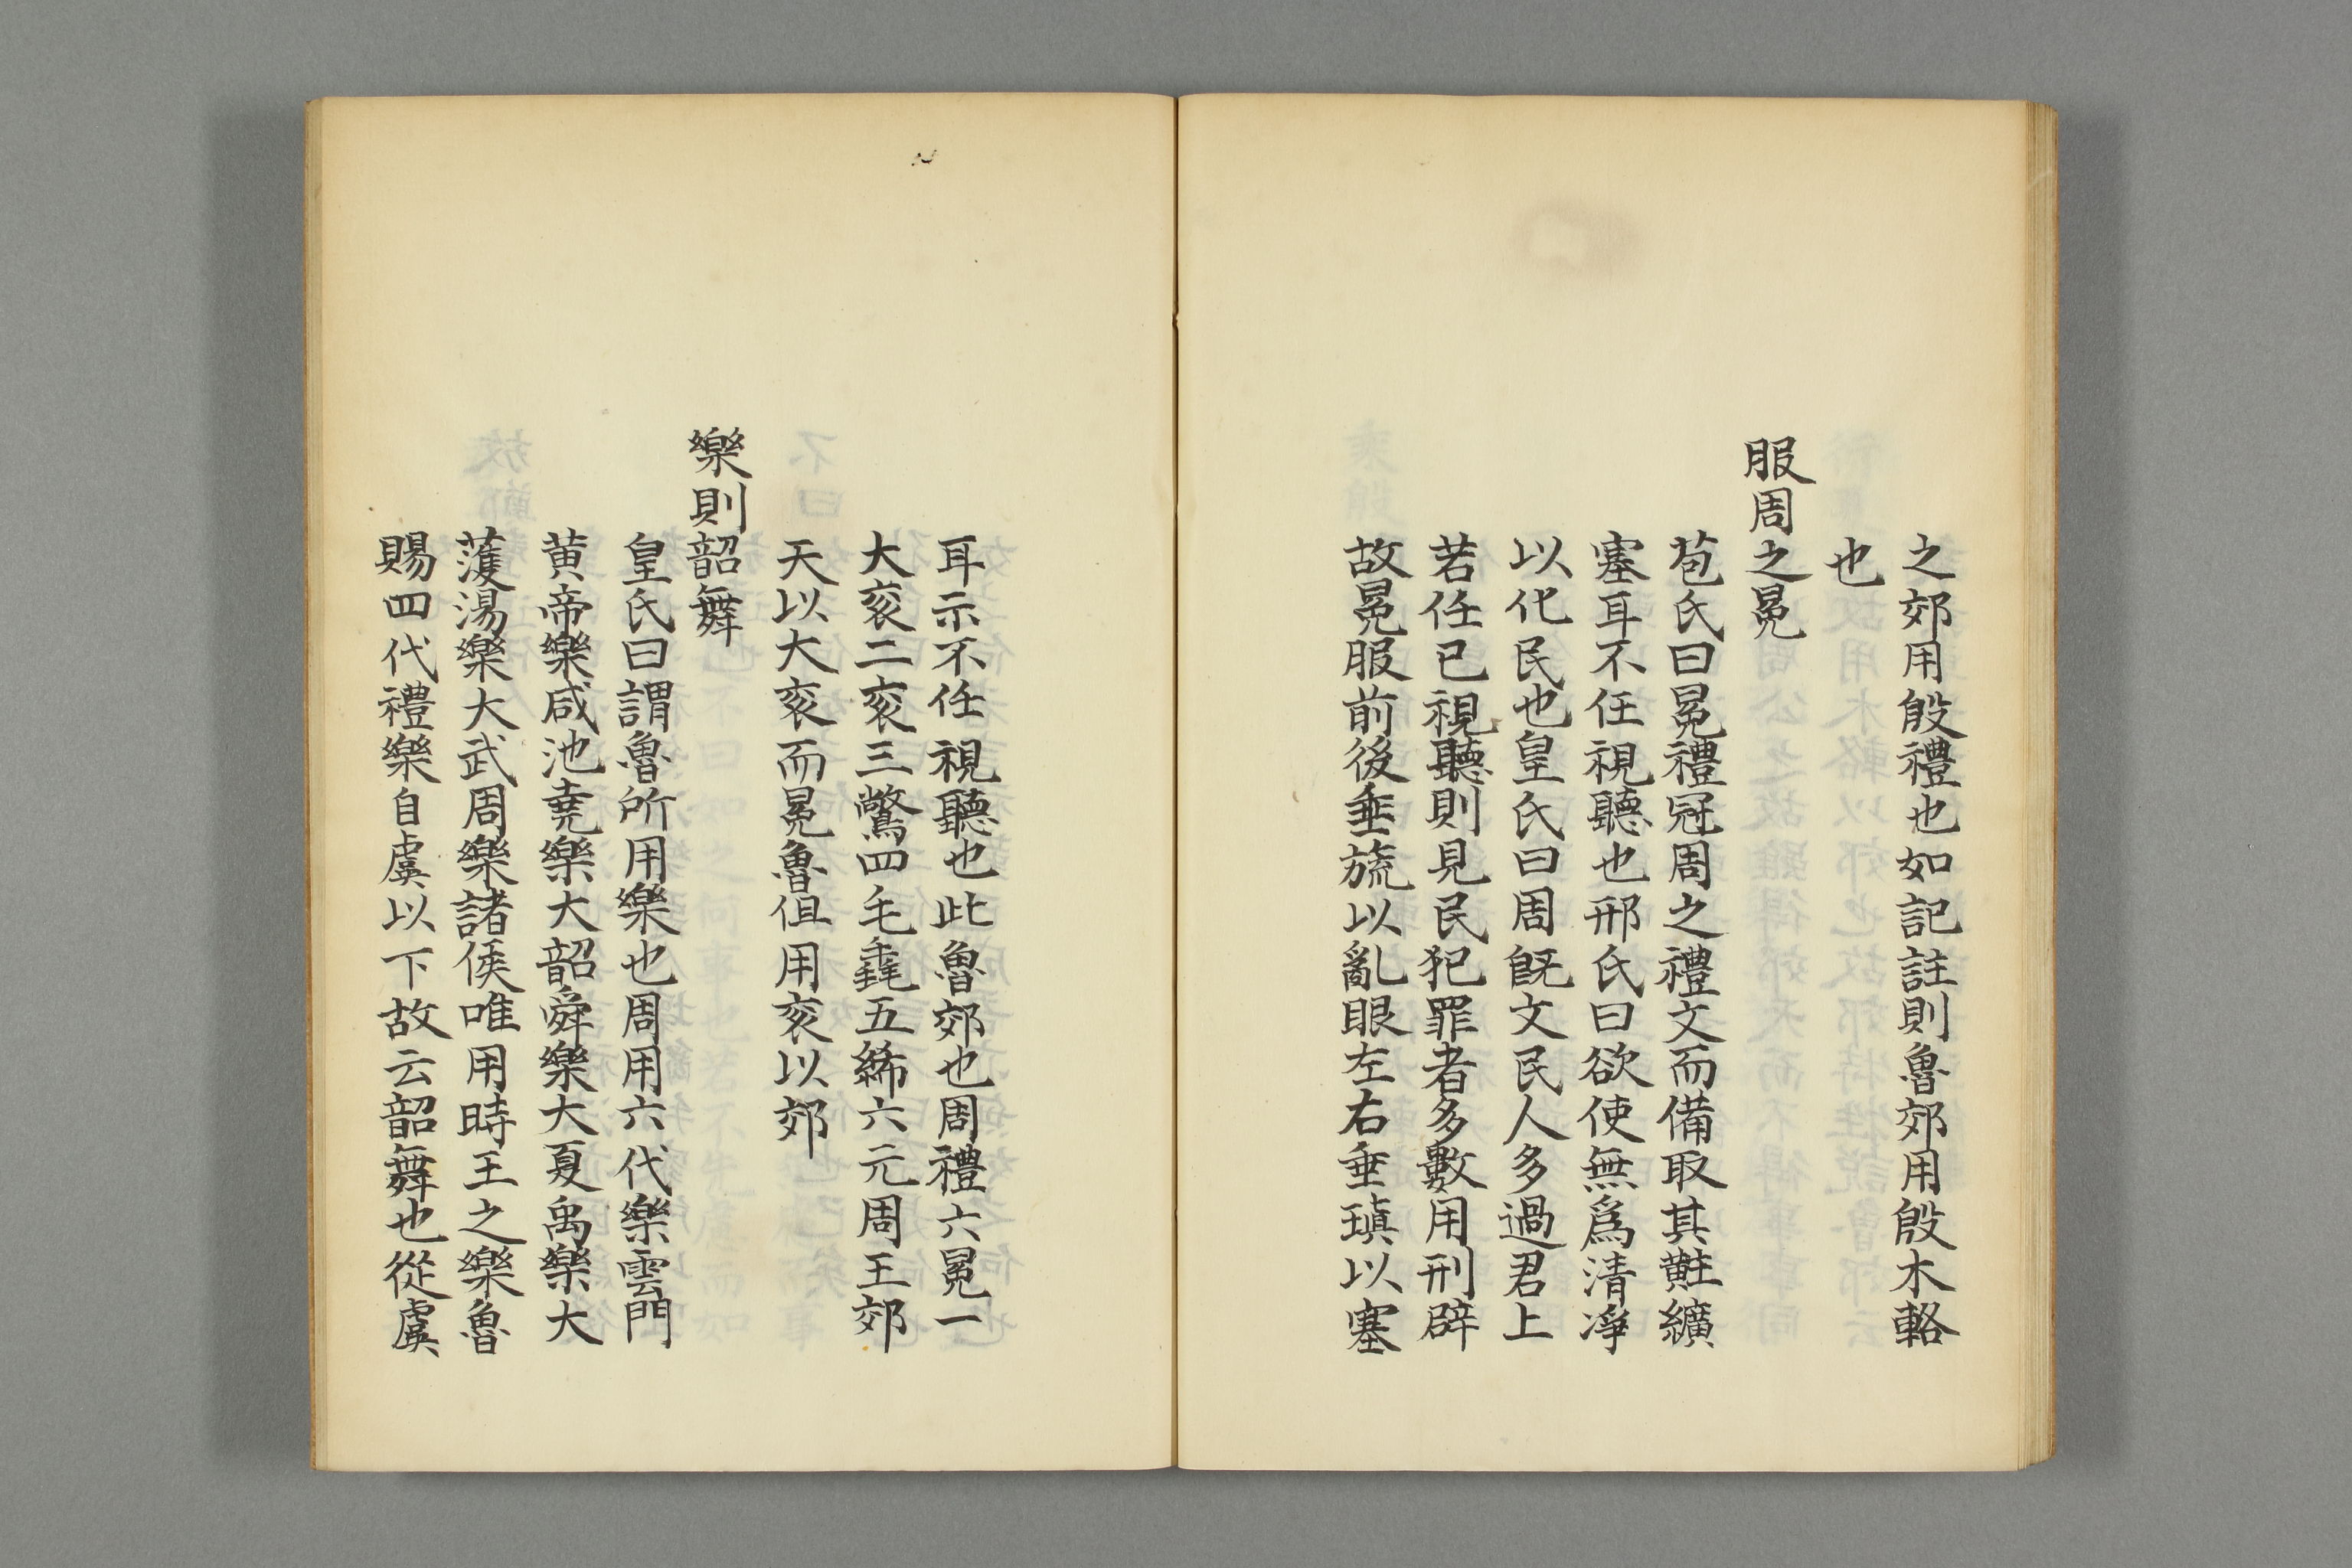 之郊用殷禮也如記註則魯郊用殷木輅
也
服周之冕
苞氏曰冕禮冠周之禮文而備取其黈纊
塞耳不任視聽也邢氏曰欲使無爲清淨
以化民也皇氏曰周旣文民人多過君上
若任已視聽則見民犯罪者多數用刑辟
故冕服前後垂旒以亂眼左右垂瑱以塞
耳示不任視聽也此魯郊也周禮六冕一
大衮二衮三鷩四毛毳五絺六元周王郊
天以大衮而冕魯但用衮以郊
樂則韶舞
皇氏曰謂魯所用樂也周用六代樂雲門
黄帝樂咸池堯樂大韶舜樂大夏禹樂大
濩湯樂大武周樂諸侯唯用時王之樂魯
賜四代禮樂自虞以下故云韶舞也從虞